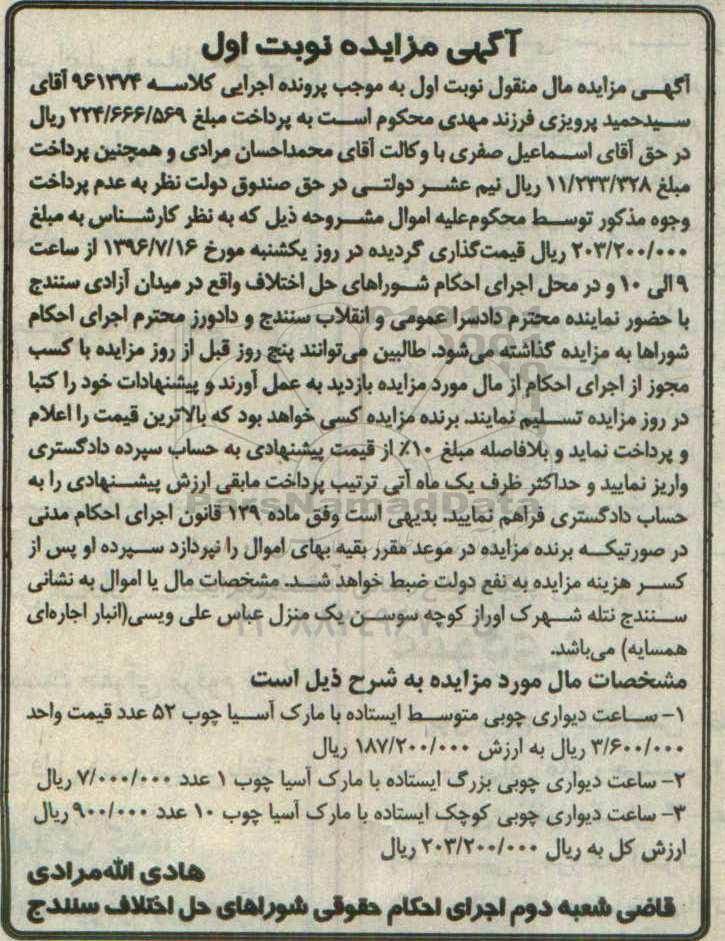 آگهی مزایده نوبت اول
آگهـــی مزایده مال منقول نوبت اول به موجب پرونده اجرایی کلاسـه ۹۶۱۳۷۴ آقای
سـیدحمید پرویزی فرزند مهدی محکوم اسـت به پرداخت مبلغ ۲۲۴/۶۶۶/۵۶۹ ریال
در حق آقای اسـماعیل صفری با وکالت آقای محمداحسان مرادی و همچنین پرداخت
مبلغ ۱۱/۲۳۳/۳۲۸ ریال نیم عشـر دولتـی در حق صندوق دولت نظر به عدم پرداخت
وجوه مذکور توسـط محکوم‌علیه اموال مشـروحه ذیل که به نظر کارشـناس به مبلغ
۲۰۳/۲۰۰/۰۰۰ ریال قیمت‌گذاری گردیده در روز یکشنبه مورخ ۱۳۹۶/۷/۱۶ از ساعت
۹ الی ۱۰ و در محل اجرای احکام شـوراهای حل اختلاف واقع در میدان آزادی سنندج
با حضور نماینده محترم دادسرا عمومی و انقلاب سنندج و دادورز محترم اجرای احکام
شوراها به مزایده گذاشته می‌شود. طالبین می‌توانند پنج روز قبل از روز مزایده با کسب
مجوز از اجرای احکام از مال مورد مزایده بازدید به عمل آورند و پیشنهادات خود را کتبا
در روز مزایده تسـلیم نمایند. برنده مزایده کسی خواهد بود که بالاترین قیمت را اعلام
و پرداخت نماید و بلافاصله مبلغ ۱۰٪ از قیمت پیشنهادی به حساب سپرده دادگستری
واریز نمایید و حداکثر ظرف یک ماه آتی ترتیب پرداخت مابقی ارزش پیشـنهادی را به
حساب دادگستری فراهم نمایید. بدیهی است وفق ماده ۱۳۹ قانون اجرای احکام مدنی
در صورتیکـه برنده مزایده در موعد مقرر بقیه بهای اموال را نپردازد سـپرده او پس از
کسـر هزینه مزایده به نفع دولت ضبط خواهد شـد. مشخصات مال یا اموال به نشانی
سـنندج نتله شـهرک اوراز کوچه سوسـن یک منزل عباس علی ویسی(انبار اجاره‌ای
همسایه) می‌باشد.
مشخصات مال مورد مزایده به شرح ذیل است
۱- سـاعت دیواری چوبی متوسـط ایستاده با مارک آسـیا چوب ۵۲ عدد قیمت واحد
۳/۶۰۰/۰۰۰ ریال به ارزش ۱۸۷/۲۰۰/۰۰۰ ریال
۲- ساعت دیواری چوبی بزرگ ایستاده با مارک آسیا چوب ۱ عدد ۷/۰۰۰/۰۰۰ ریال
۳- ساعت دیواری چوبی کوچک ایستاده با مارک آسیا چوب ۱۰ عدد ۹۰۰/۰۰۰ ریال
ارزش کل به ریال ۲۰۳/۲۰۰/۰۰۰ ریال
هادی الله‌مرادی
قاضی شعبه دوم اجرای احکام حقوقی شوراهای حل اختلاف سنندج